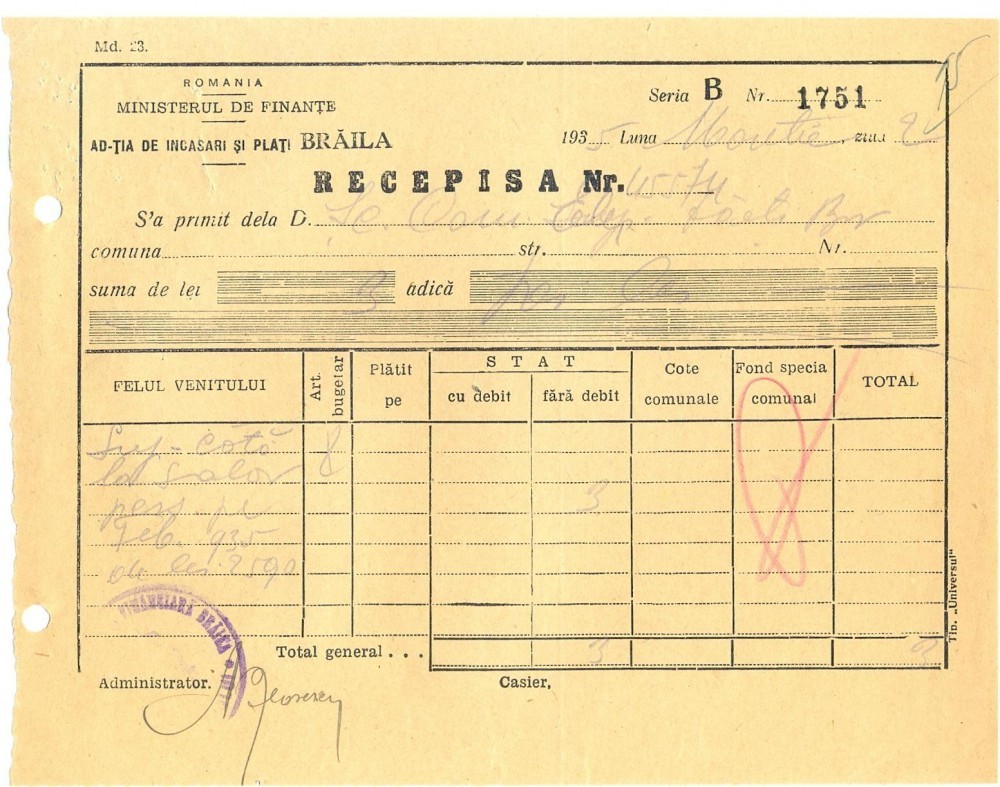 Md. 23.
15
ROMANIA
MINISTERUL DE FINANȚE
AD-ȚIA DE INCASARI ȘI PLATI BRĂILA
Seria B Nr. 1751
1935 Luna Martie, ziua 2
RECEPISA Nr. 45574
S'a primit dela D. Sc. Com
comuna str. Nr.
suma de lei 3 adică trei
FELUL VENITULUI Art. bugetar Plătit pe STAT cu debit fără debit Cote comunale Fond special comunal TOTAL
cotă 8
la salor
pers. pe 3
Feb. 935
de lei 2590
Total general . . . 3 3
FINANCIARA BRĂILA
Administrator. Casier,
Tip. „Universul"